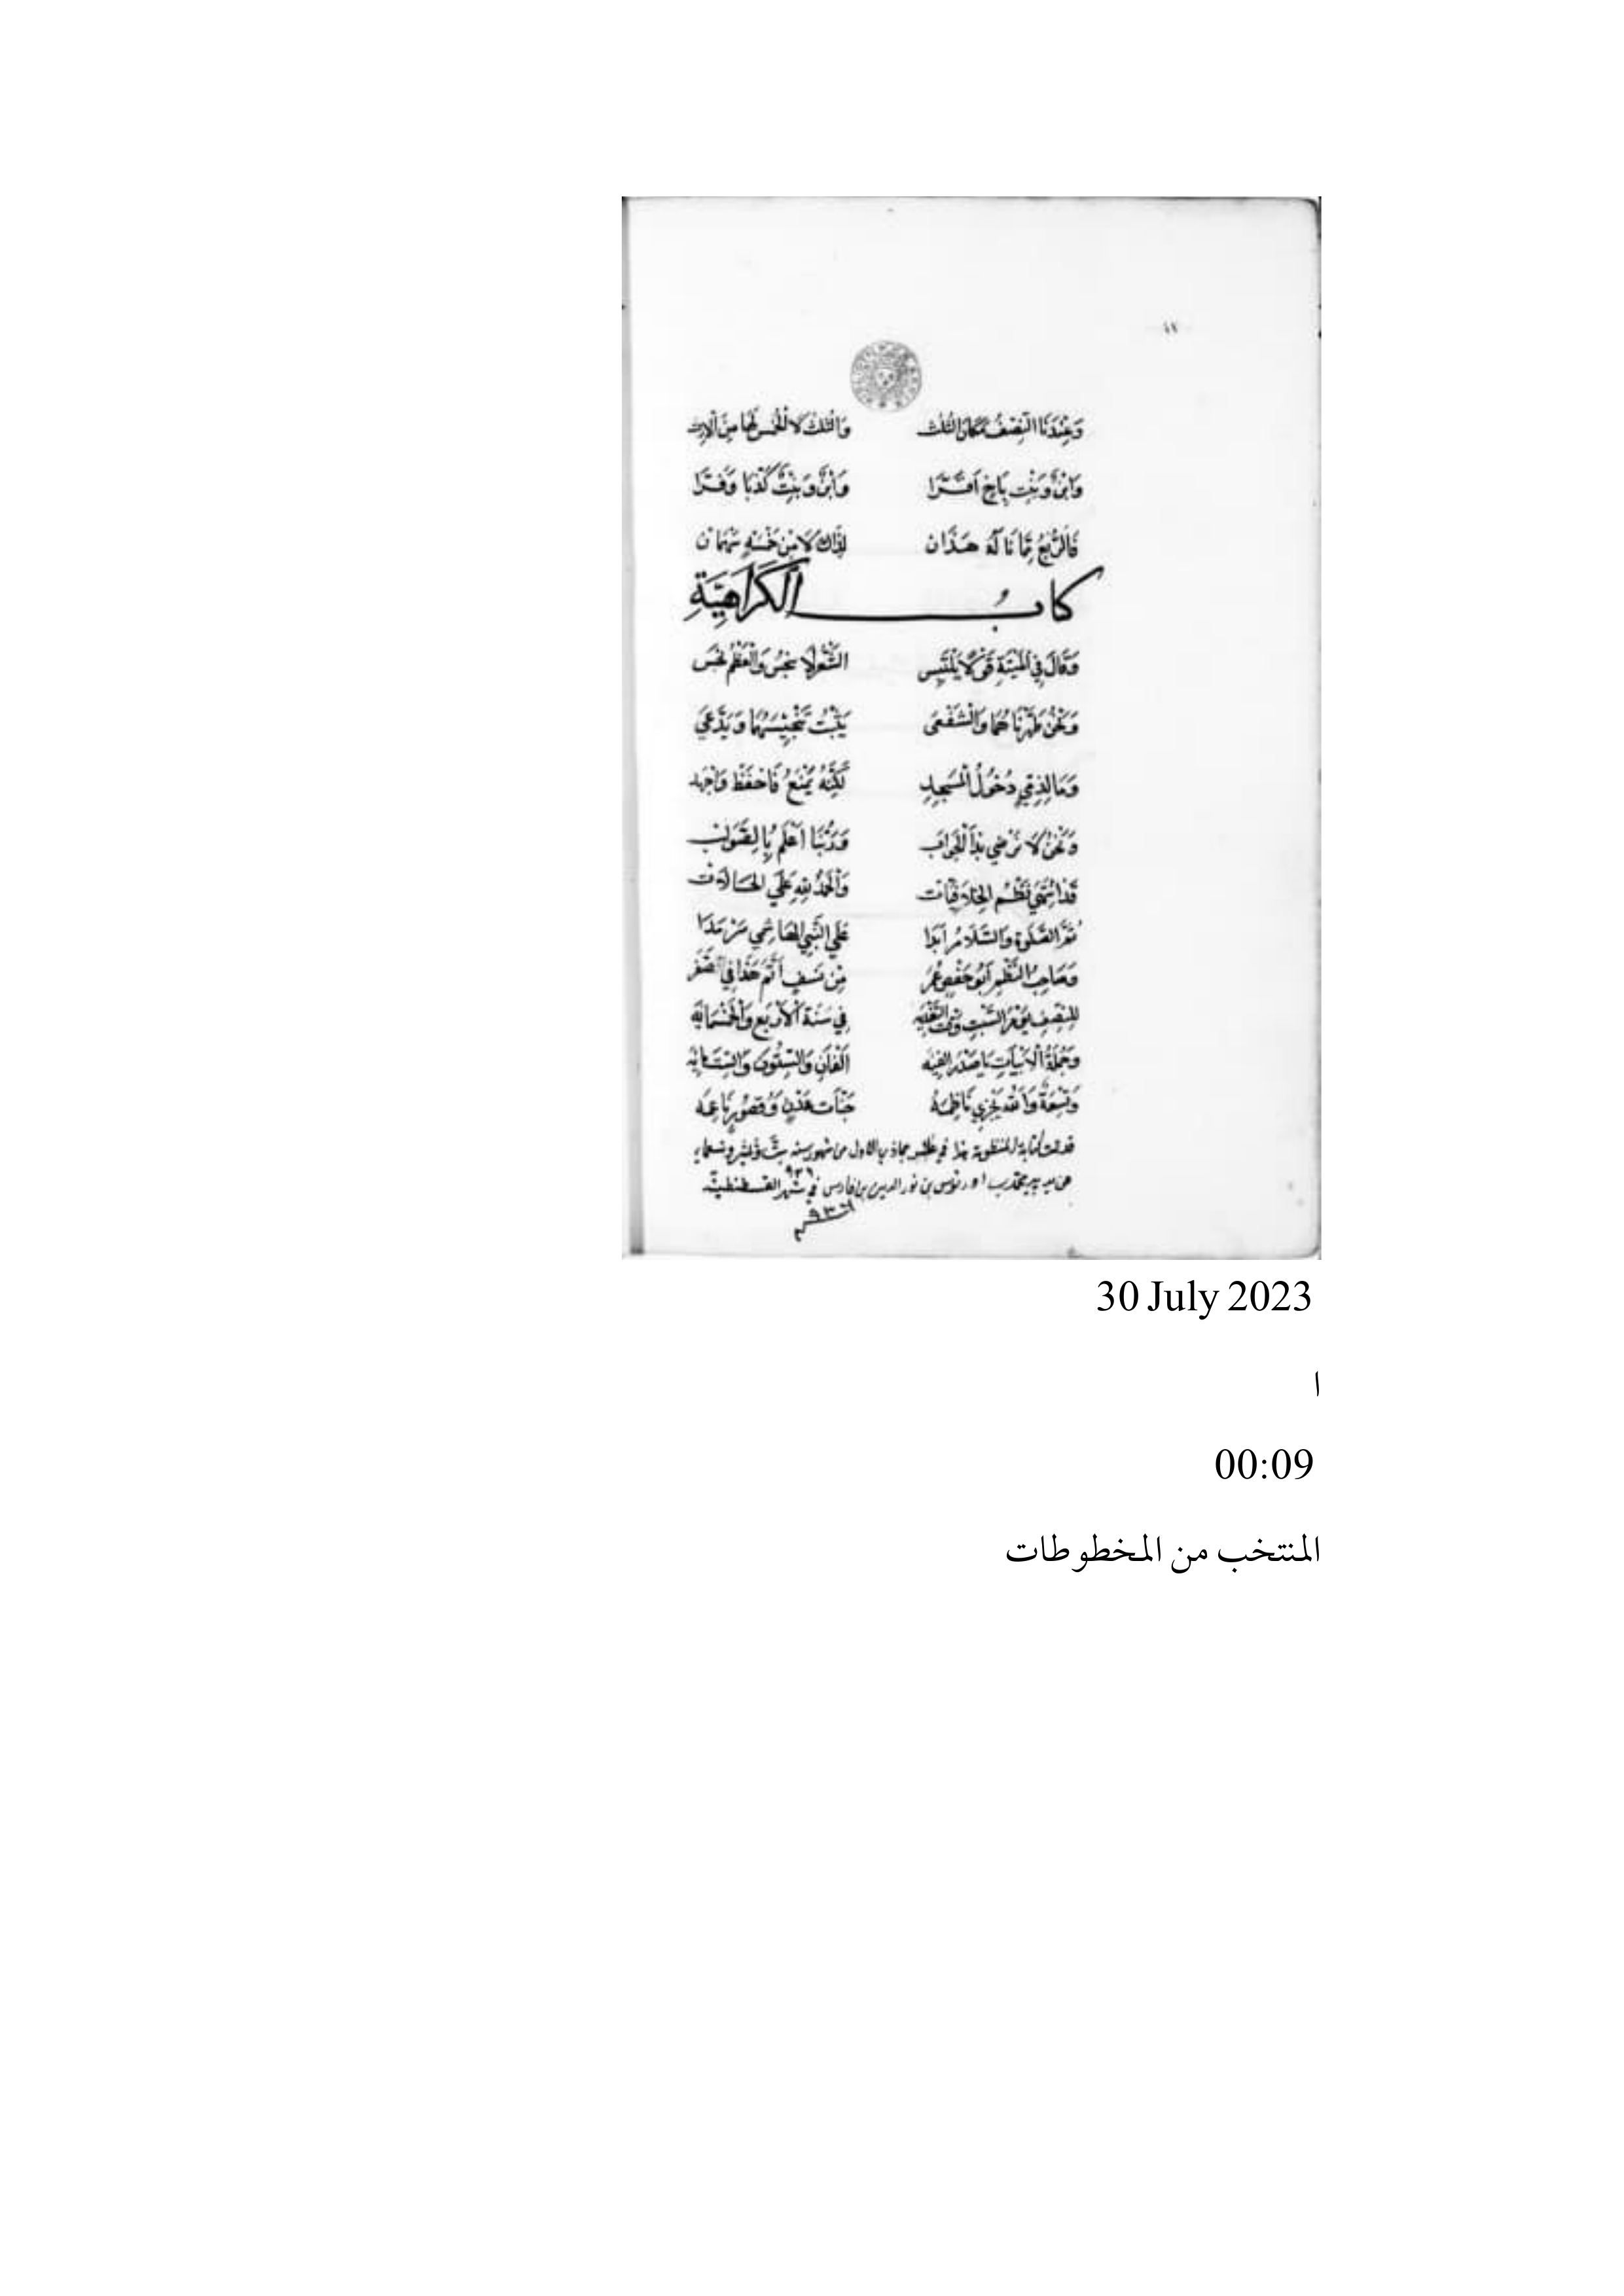 وَعِنْدَنَا النِّصْفُ مَكَانَ الثُّلُث وَالثُّلْثُ لَا الْخُمْسُ لَهَا مِنَ الْاِرْثِ
وَابْنٌ وَبِنْت بِاَخ اَقَرَّا وَابْنٌ وَبِنْتٌ كَذَّبَا وَفَرَّا
فَالرُّبْعُ مِمَّا نَالَهُ هَذَان لِذَاكَ لَا مِنْ خَمْسَةٍ سَهْمَانْ
كتابُ الْكَرَاهِيَّةِ
وَقَالَ فِي الْمَيْتَةِ قَوْلًا يَلْتَبِس الشَّعْرُ لَا يَنْجُسُ وَالْعَظْمُ نَجَس
وَنَحْنُ طَهَّرْنَاهُمَا وَالشَّفْعَى يَثْبُتُ تَنْجِيْسَهُمَا وَيَدَّعِي
وَمَا لِذِمِّيٍ دُخُولُ الْمَسْجِدِ لَكِنَّهُ يُمْنَعُ فَاحْفَظْ وَاجْهَد
وَنَحْنُ لَا نَرْضِي بِذَا الْجَوَاب وَرَبُّنَا اَعْلَم بِالصَّوَاب
قَد انْتَهَى نَظْمُ الْخِلَافِيَّات وَالْحَمْدُ لِلَّهِ عَلَي الْحَالَات
ثُمَّ الصَّلٰوة وَالسَّلَامُ اَبَدَا عَلَي النَّبِي الْهَاشِمِي سَرْمَدَا
وَصَاحِبُ النَّظْمِ اَبُو حَفْصٍ عُمَر مِنْ نَسَفٍ اَتَمَّ هَذَا فِي صَفَر
لِلنِّصْفِ يَوْمَ السَّبْتِ فِي سَنَة الْاَرْبَعِ وَالْخَمْسِمِائَة
وَجُمْلَةُ الْاَبْيَاتِ يَا صَدْرَ الفِئَه اَلْفَانِ وَالسِّتُّونَ وَالسِّتّمِائَه
وَتِسْعَةٌ وَاللّٰه يَجْزِي نَاظِمَهُ جَنَّات عَدْنٍ وَقُصُورٍ نَاعِمَه
قد تمت كتابة المنظومة هذا في جماذي الاول من شهور سنه ستّ وثلثين وتسعمايه
عن يد بن نور الدين بن فارس في شهر القسطنطنيّه
٩٣٦
30 July 2023
ا
00:09
المنتخب من المخطوطات